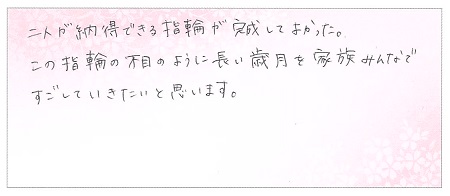 二人が納得できる指輪が完成してよかった。
この指輪の木目のように長い歳月を家族みんなで
すごしていきたいと思います。